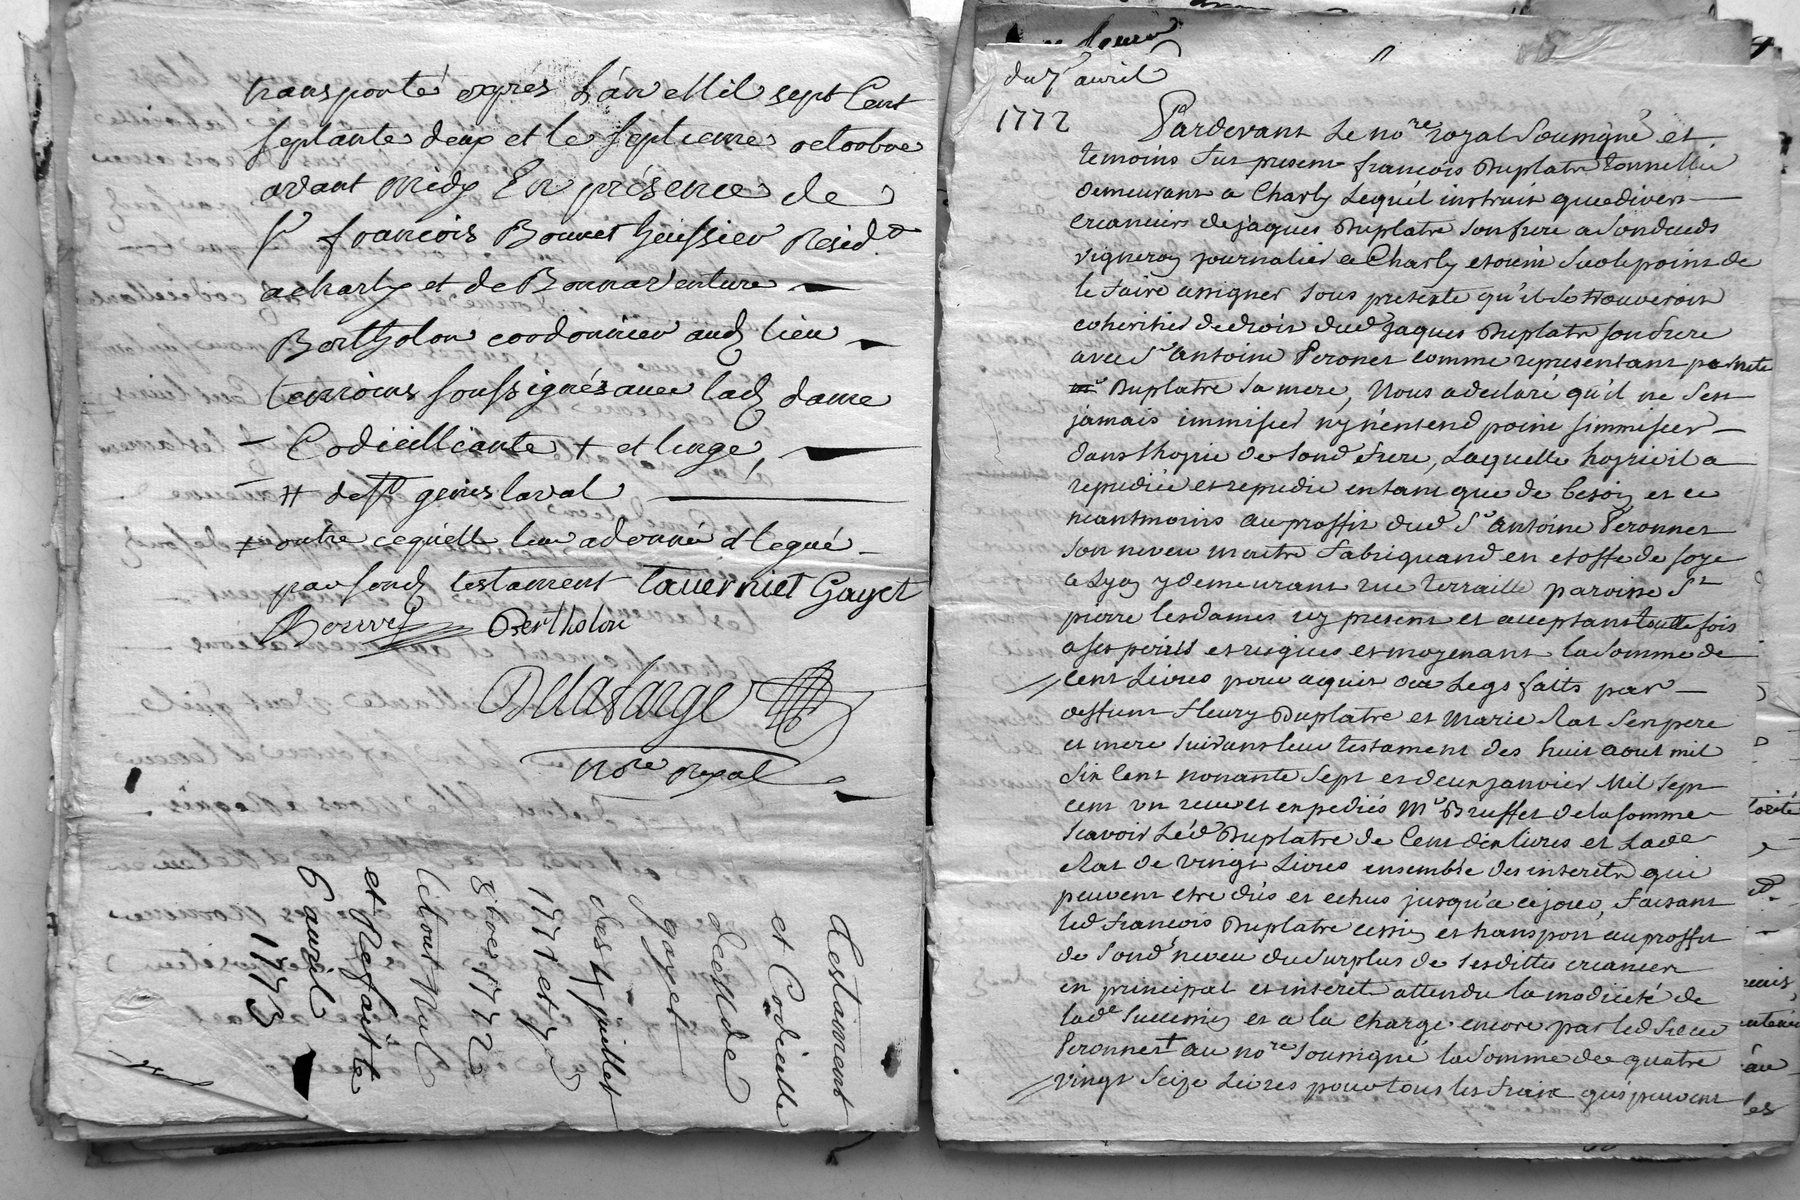 transporté exprès L'an Mil sept Cent
septante deux et le septieme octobre
avant midy En présence de
sr françois Bouvet huissier Resid.t
a charly et de Bonnaventure
Bertholon cordonnier aud lieu
temoins soussignés avec lad dame
Codicilliante + et linge,
# de st genis laval
+ outre ce quelle luy a donné et legué
par sond testament Tavernier Gayet
Bouvet Bertholon
Delafarge
nore royal
Testament
et Codicille
de Mde
gayet
des 4 juillet
1771 et 7
8bre 1772
Le tout Nul
et Refait le
6 avril
1773
du 7 avril
1772
Pardevant Le nore royal Soussigné et
temoins fut present françois Duplatre tonnellier
demeurant a Charly Lequel instruit que divers
creanciers de jaques Duplatre son frere a son deceds
vigneron journalier a Charly etoient sur le point de
le faire assigner sous pretexte qu'il se trouveroit
coheritier de droit dud jaques Duplatre son frere
avec Sr antoine Peronnet comme representant
Duplatre sa mere, Nous a declaré qu'il ne s'est
jamais immiscer ny n'entend point simmiscer
dans lhoyrie de sond frere, Laquelle hoyrie il a
repudiée et repudie en tant que de besoin et ce
neantmoins au proffit dud Sr antoine Peronnet
son neveu maitre fabriquand en etoffe de soye
a Lyon y demeurant rue terraille paroisse St
pierre les dames icy present et acceptant toutte fois
a ses perils et risques et moyenant la somme de
Cent Livres pour acquit des Legs faits par
deffunt fleury Duplatre et Marie Rat Ses pere
et mere suivant leur testament des huit aout mil
Six Cent nonante Sept et deux janvier Mil Sept
cent un receus et expediés Me Bruffet de la somme
Scavoir Led Duplatre de Cent dix livres et Lade
Rat de vingt Livres ensemble des interets qui
peuvent etre dûs et echus jusqu'a ce jour, faisant
led François Duplatre cession et transport au proffit
de Sond neveu du Surplus de Sesdittes creances
en principal et interet attendu la modicité de
lade Succession et a la charge encore par led Sieur
Peronnet au nore Soussigné la Somme de quatre
vingt Seize Livres pour tous les fraix qui peuvent